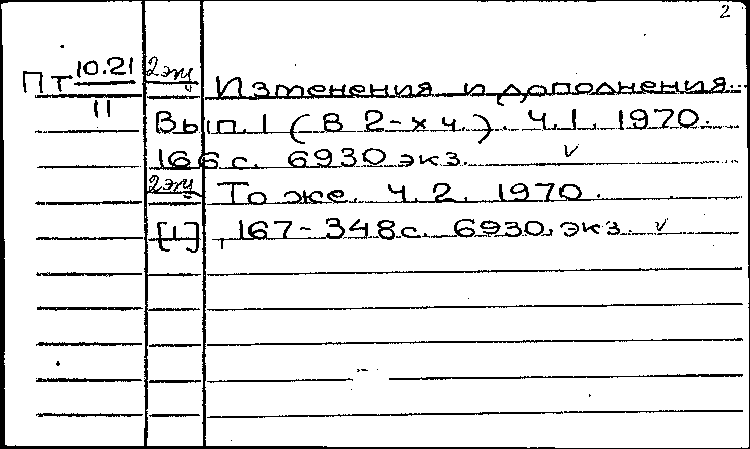 2
Пт 10.21 2 экз Изменения и дополнения.
11 Вып. 1 (в 2-х ч.). Ч. 1. 1970.
166 с. 6930 экз. ✓
2 экз То же. Ч. 2. 1970.
[1], 167-348 с. 6930 экз. ✓